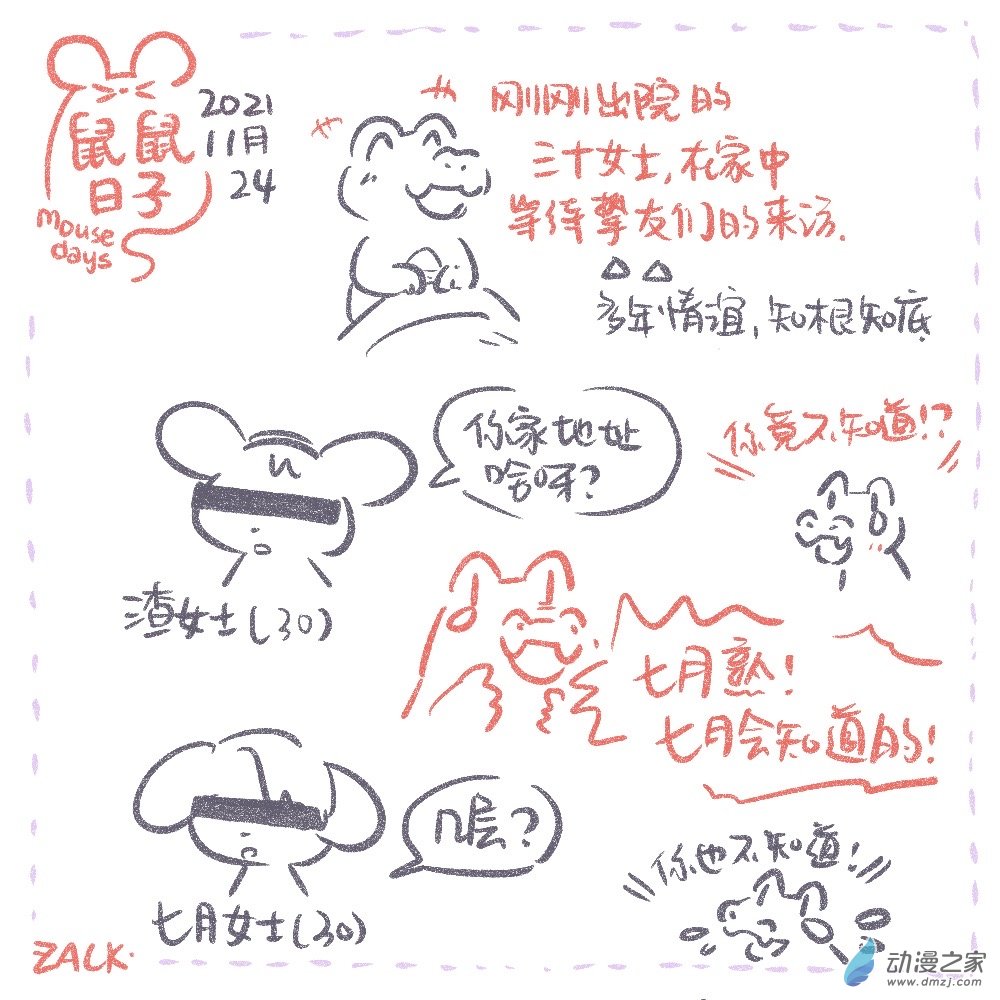 鼠鼠
日子
mouse
days
2021
11月
24
刚刚出院的
三十女士,在家中
等待挚友们的来访.
多年情谊,知根知底
你家地址
啥呀?
你竟不知道!?
渣女士(30)
七月熟!
七月会知道的!
几层?
你也不知道!
七月女士(30)
ZALK.
动漫之家
www.dmzj.com